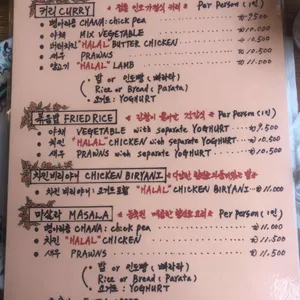 커리 CURRY Per Person (1인)
병아리콩 CHANA: chick pea ₩9.500
야채 MIX VEGETABLE ₩10.000
버터치킨 "HALAL" BUTTER CHICKEN ₩10.500
새우 PRAWNS ₩10.500
양고기 "HALAL" LAMB ₩11.000
밥 or 인도빵 (빠라타)
Rice or Bread (Parata)
요거트: YOGHURT
볶음밥 FRIED RICE Per Person (1인)
야채 VEGETABLE with separate YOGHURT ₩9.500
치킨 "HALAL" CHICKEN with separate YOGHURT ₩10.500
새우 PRAWNS with separate YOGHURT ₩10.500
치킨 비리야니 CHICKEN BIRYANI
치킨 비리야니: 요거트 포함 "HALAL" CHICKEN BIRYANI ₩11.000
마살라 MASALA Per Person (1인)
병아리콩 CHANA: chick pea ₩11.000
치킨 "HALAL" CHICKEN ₩11.500
새우 PRAWNS ₩11.500
밥 or 인도빵 (빠라타)
Rice or Bread (Parata)
요거트: YOGHURT